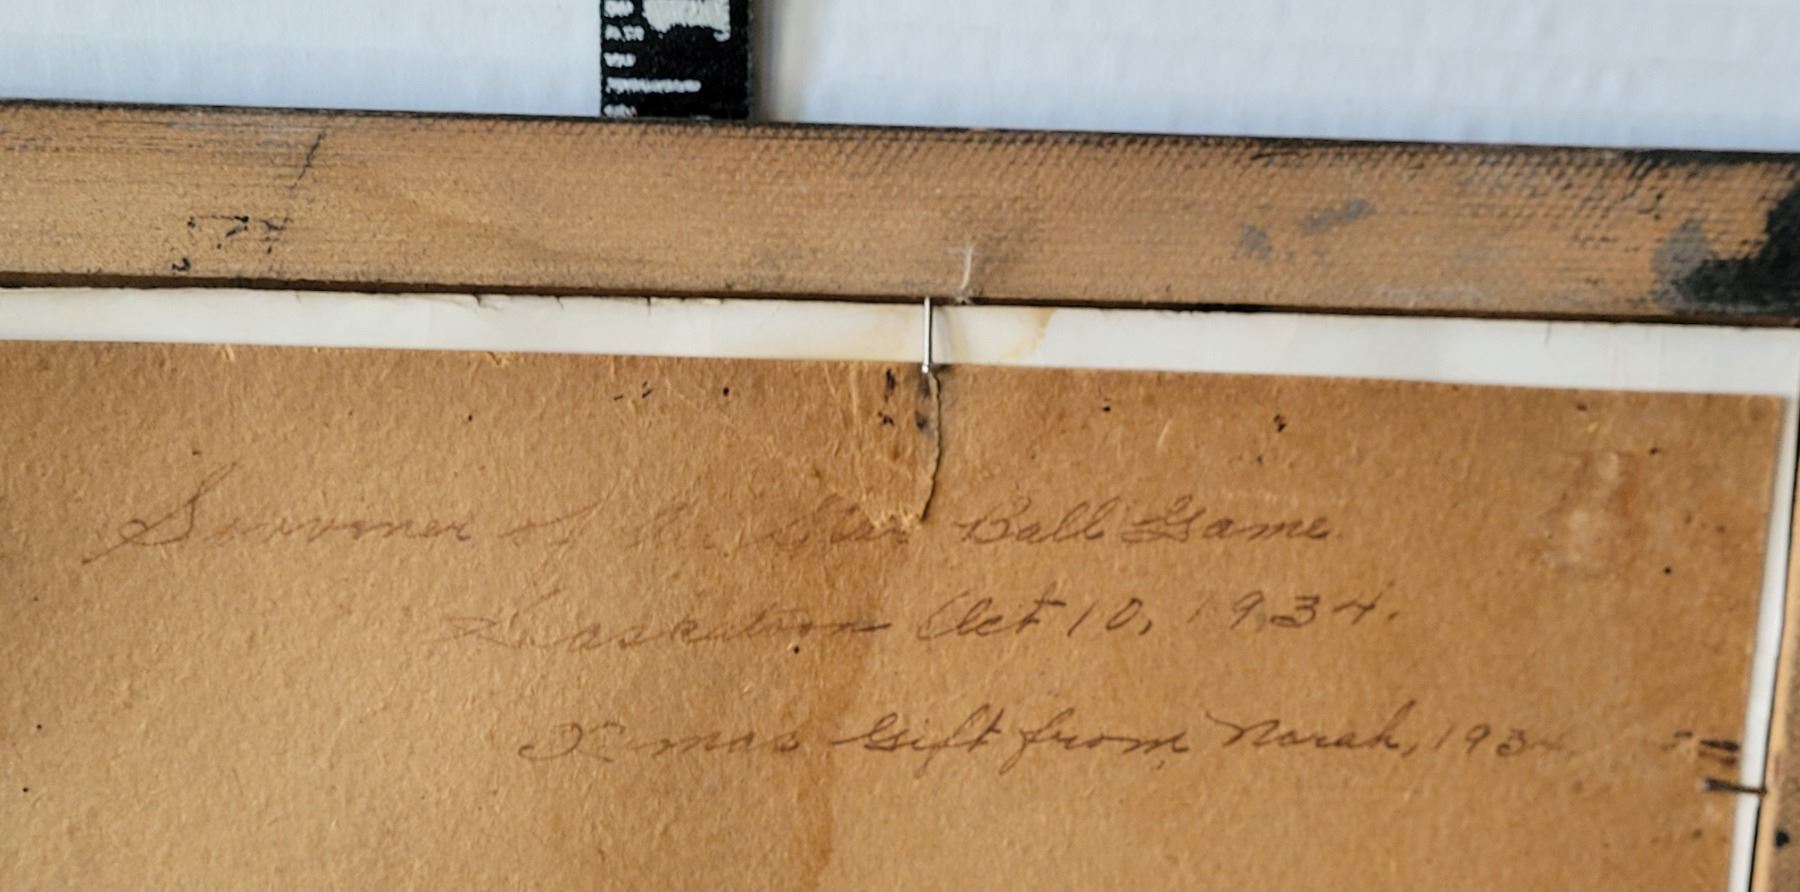 Souvoner of All Star Ball Game
Saskatoon Oct 10, 1934.
X-mas Gift from Norah, 193